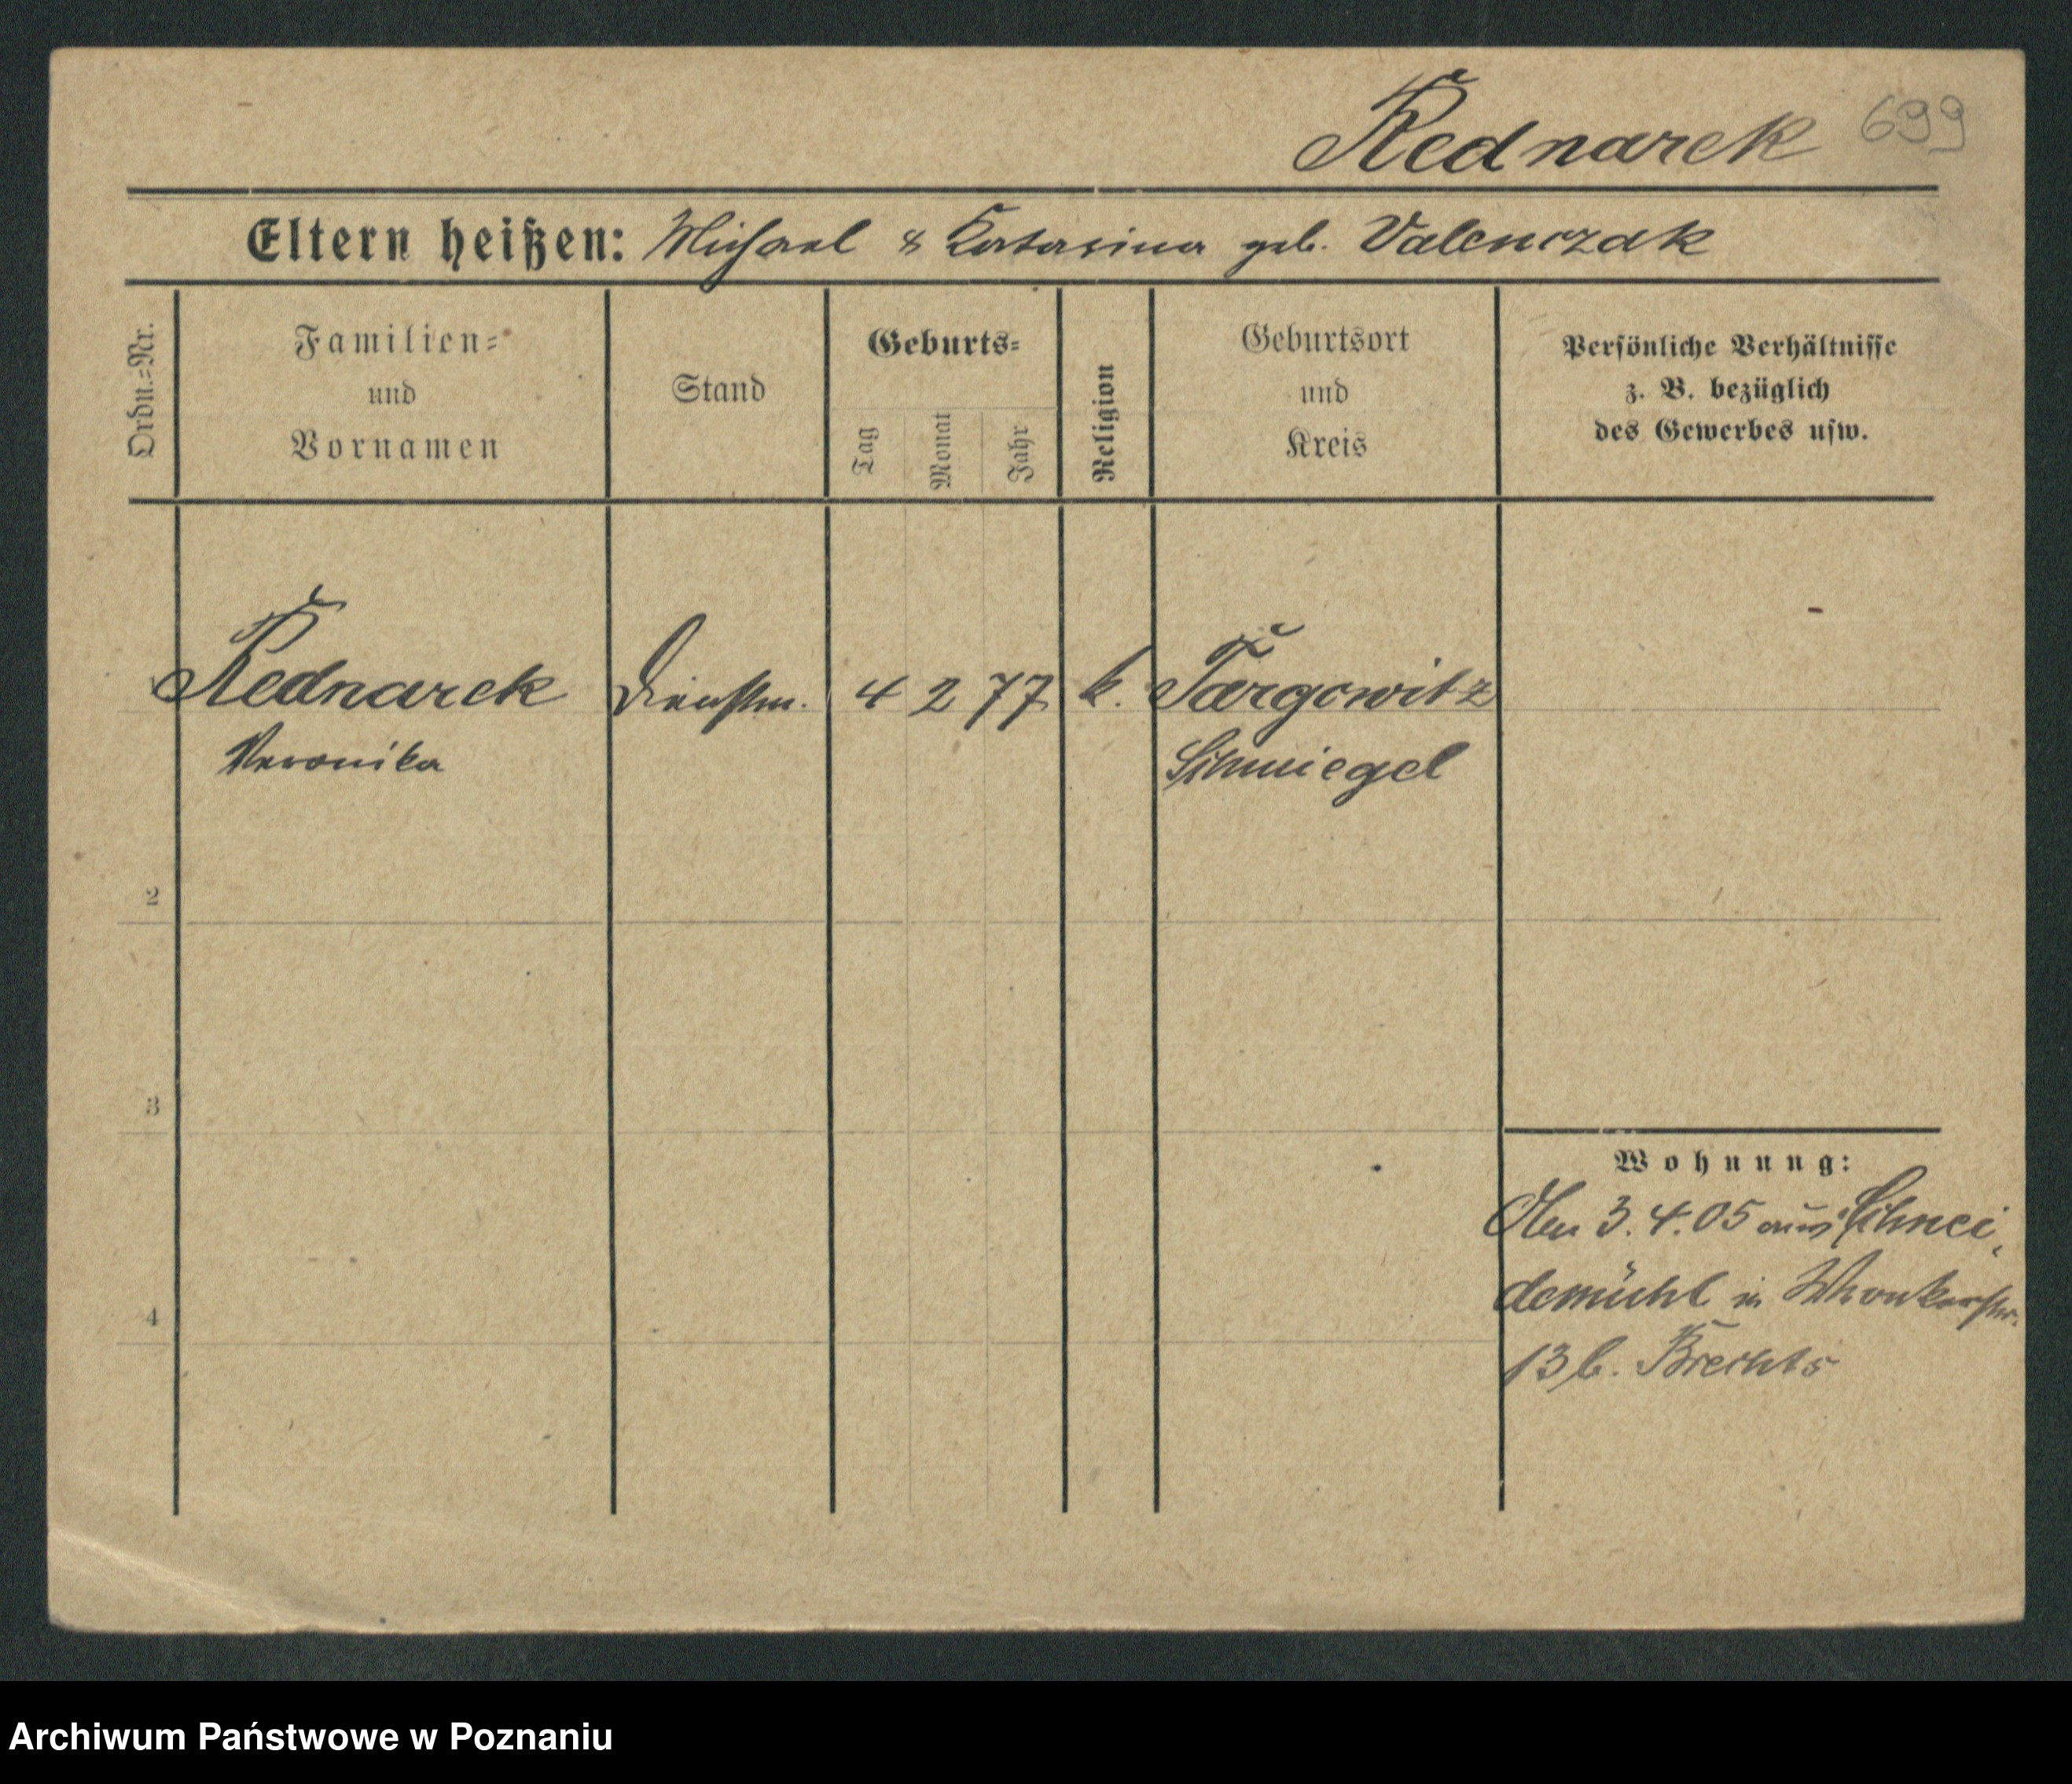 Rednarek 699
Eltern heißen: Michael & Katarina geb. Valenczak
Ordn.=Nr.
Familien=
und
Vornamen
Stand
Geburts=
Tag
Monat
Jahr
Religion
Geburtsort
und
Kreis
Persönliche Verhältnisse
z. B. bezüglich
des Gewerbes usw.
Rednarek Dienstm. 4 2 77 k. Targowitz
Veronika Schmiegel
2
3
4
Wohnung:
3.4.05 aus Schnei
demühl in Wronkerstr.
13 b. Brechts
Archiwum Państwowe w Poznaniu